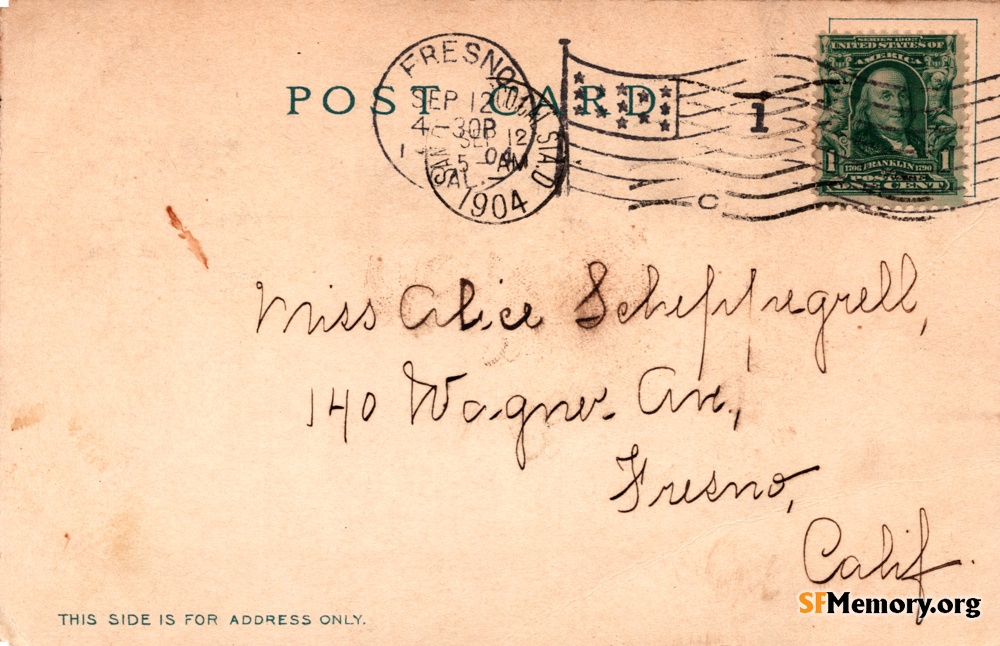 POST CARD
FRESNO
SEP 12
4-30P
SEP 12
5-AM
1904
1
C
SERIES 1902
UNITED STATES OF
AMERICA
1706 FRANKLIN 1790
1 1
POSTAGE
ONE CENT
Miss Alice Scheppregrell,
140 Wagner Ave.,
Fresno,
Calif.
THIS SIDE IS FOR ADDRESS ONLY.
SFMemory.org